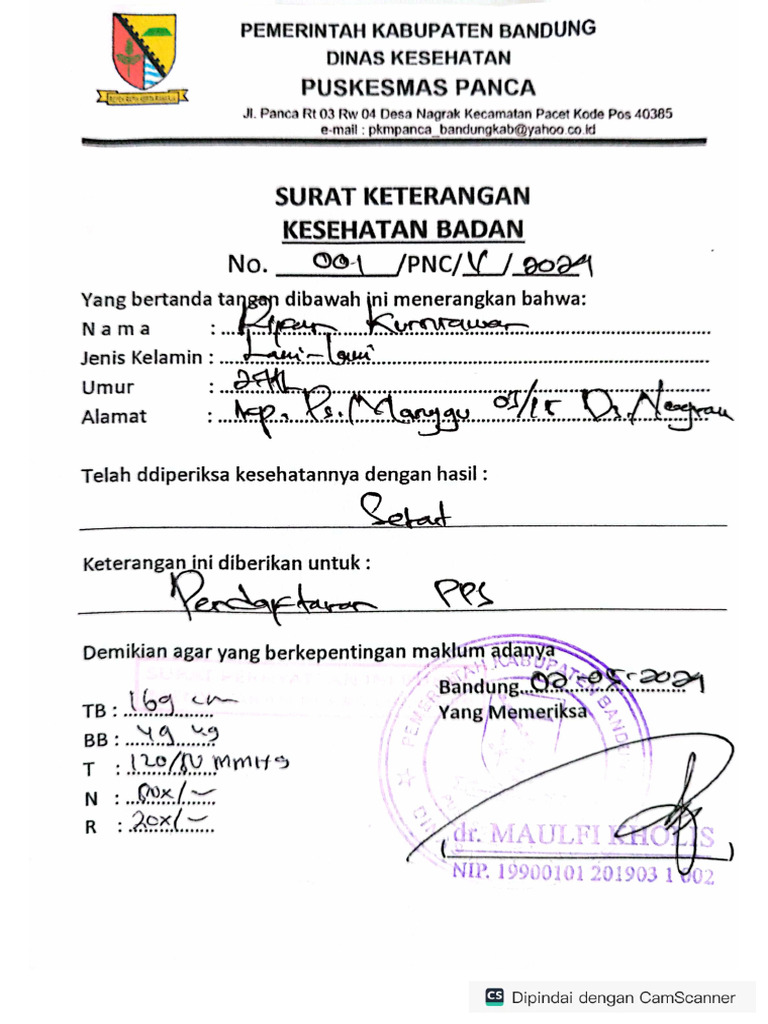 PEMERINTAH KABUPATEN BANDUNG
DINAS KESEHATAN
PUSKESMAS PANCA
Jl. Panca Rt 03 Rw 04 Desa Nagrak Kecamatan Pacet Kode Pos 40385
e-mail : pkmpanca_bandungkab@yahoo.co.id
SURAT KETERANGAN
KESEHATAN BADAN
No. 001 /PNC/ V / 2024
Yang bertanda tangan dibawah ini menerangkan bahwa:
N a m a : Ripan Kurniawan
Jenis Kelamin : Laki-laki
Umur :
Alamat : Kp. Ps. Manggu 05/15 Ds. Nagrak
Telah ddiperiksa kesehatannya dengan hasil :
Sehat
Keterangan ini diberikan untuk :
Pendaftaran PPS
Demikian agar yang berkepentingan maklum adanya
Bandung 02-05-2024
Yang Memeriksa
TB : 169 cm
BB : 49 kg
T : 120/80 mmHg
N : 80x/
R : 20x/
PEMERINTAH KABUPATEN BANDUNG
dr. MAULFI KHOLIS
NIP. 19900101 201903 1 002
CS Dipindai dengan CamScanner